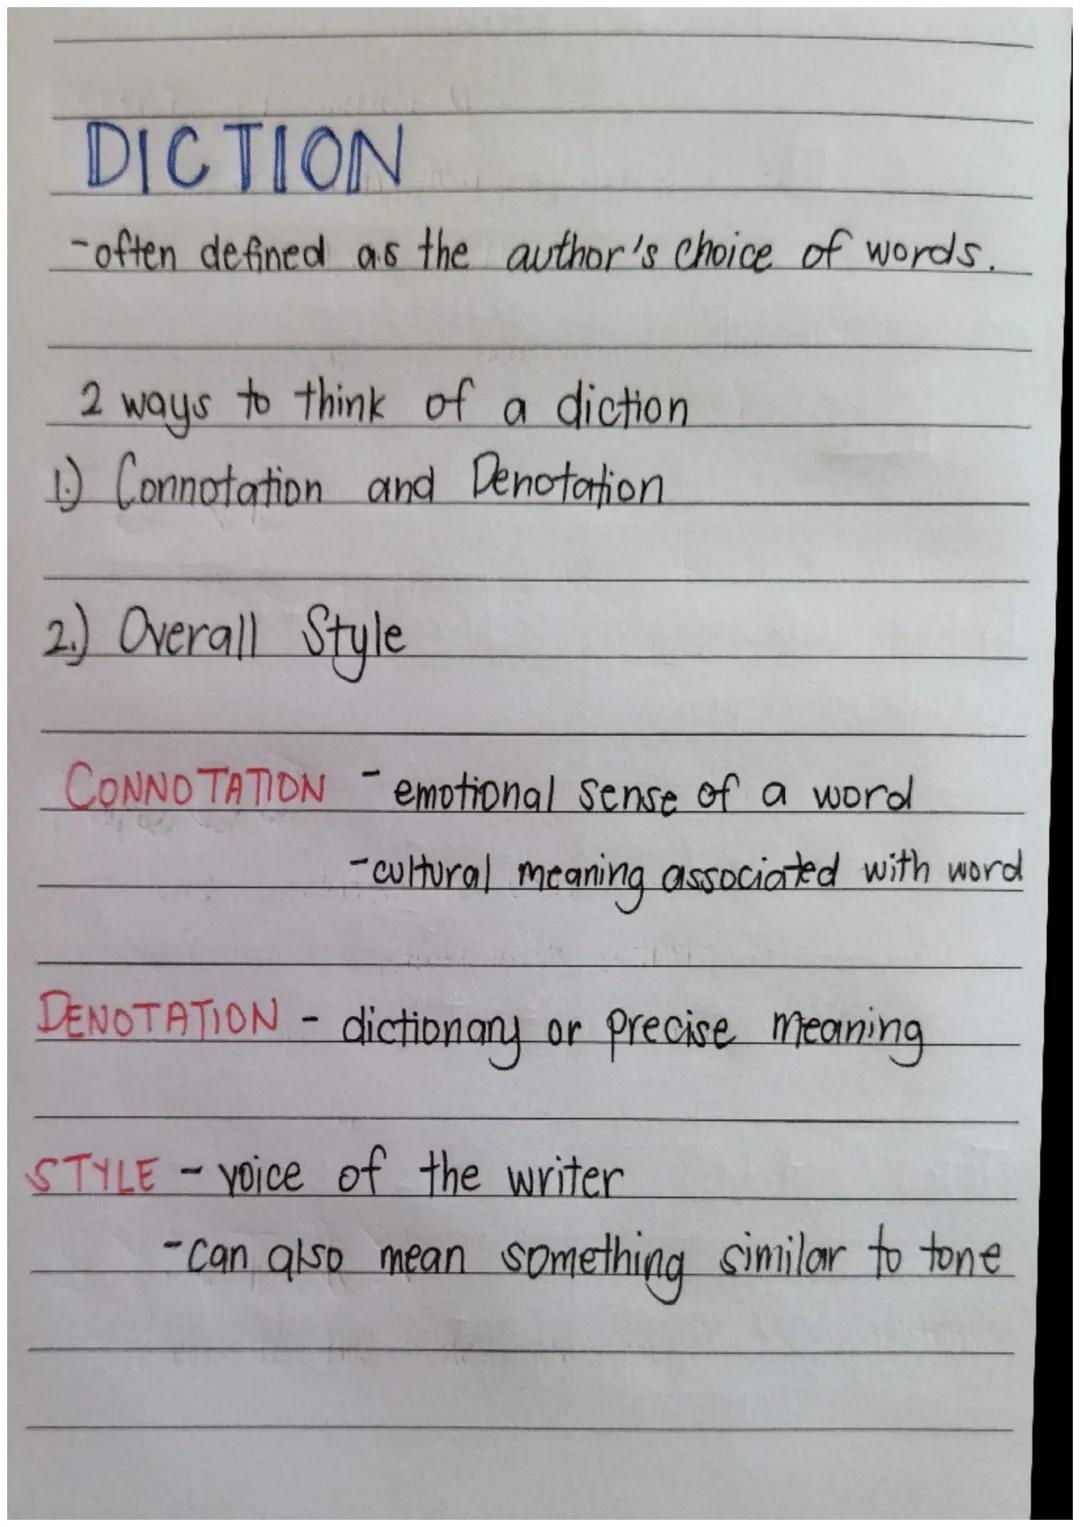 DICTION
-often defined as the author's choice of words.
2 ways to think of a diction
1.) Connotation and Denotation
2.) Overall Style
CONNOTATION - emotional sense of a word
-cultural meaning associated with word
DENOTATION - dictionary or precise meaning
STYLE - voice of the writer
-can also mean something similar to tone